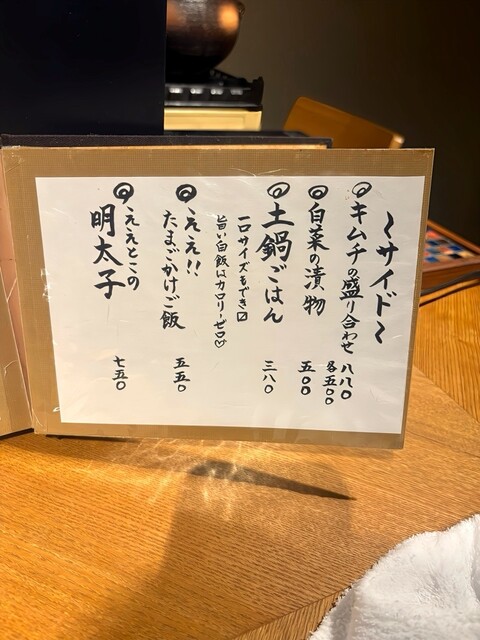 〜サイド〜
◎キムチの盛り合わせ 八八〇
各五〇〇
◎白菜の漬物 五〇〇
◎土鍋ごはん 三八〇
一口サイズもでき〼
旨い白飯はカロリーゼロ♡
◎ええ!!
たまごかけご飯 五五〇
◎ええとこの
明太子 七五〇